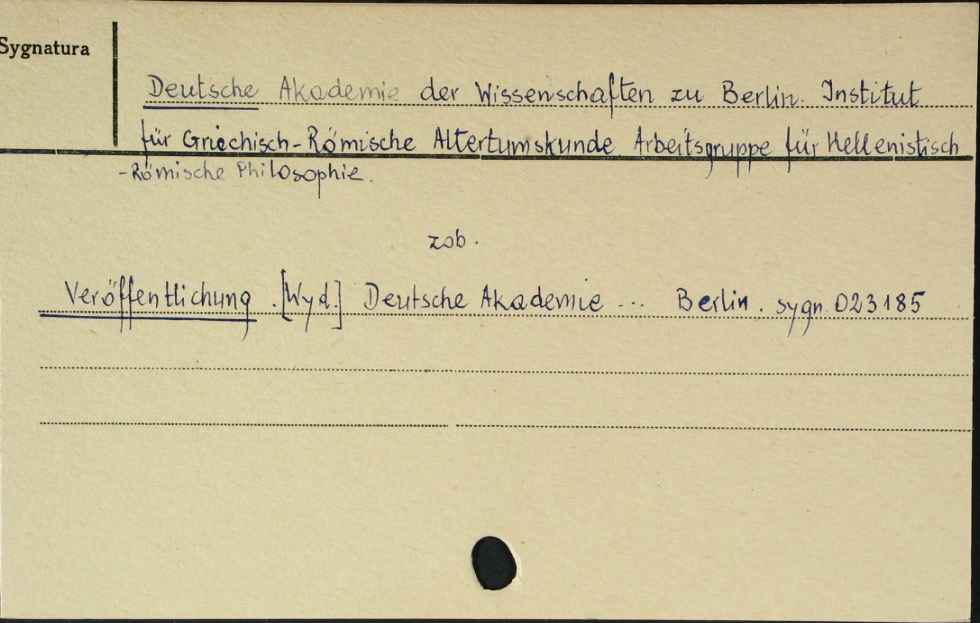 Sygnatura
Deutsche Akademie der Wissenschaften zu Berlin. Institut
für Griechisch-Römische Altertumskunde Arbeitsgruppe für Hellenistisch
-Römische Philosophie.
zob.
Veröffentlichung. [Wyd.] Deutsche Akademie ... Berlin. sygn. 023185